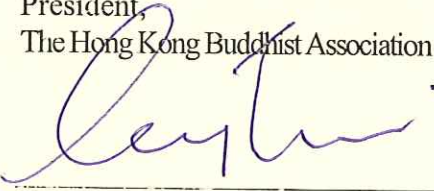 President,
The Hong Kong Buddhist Association